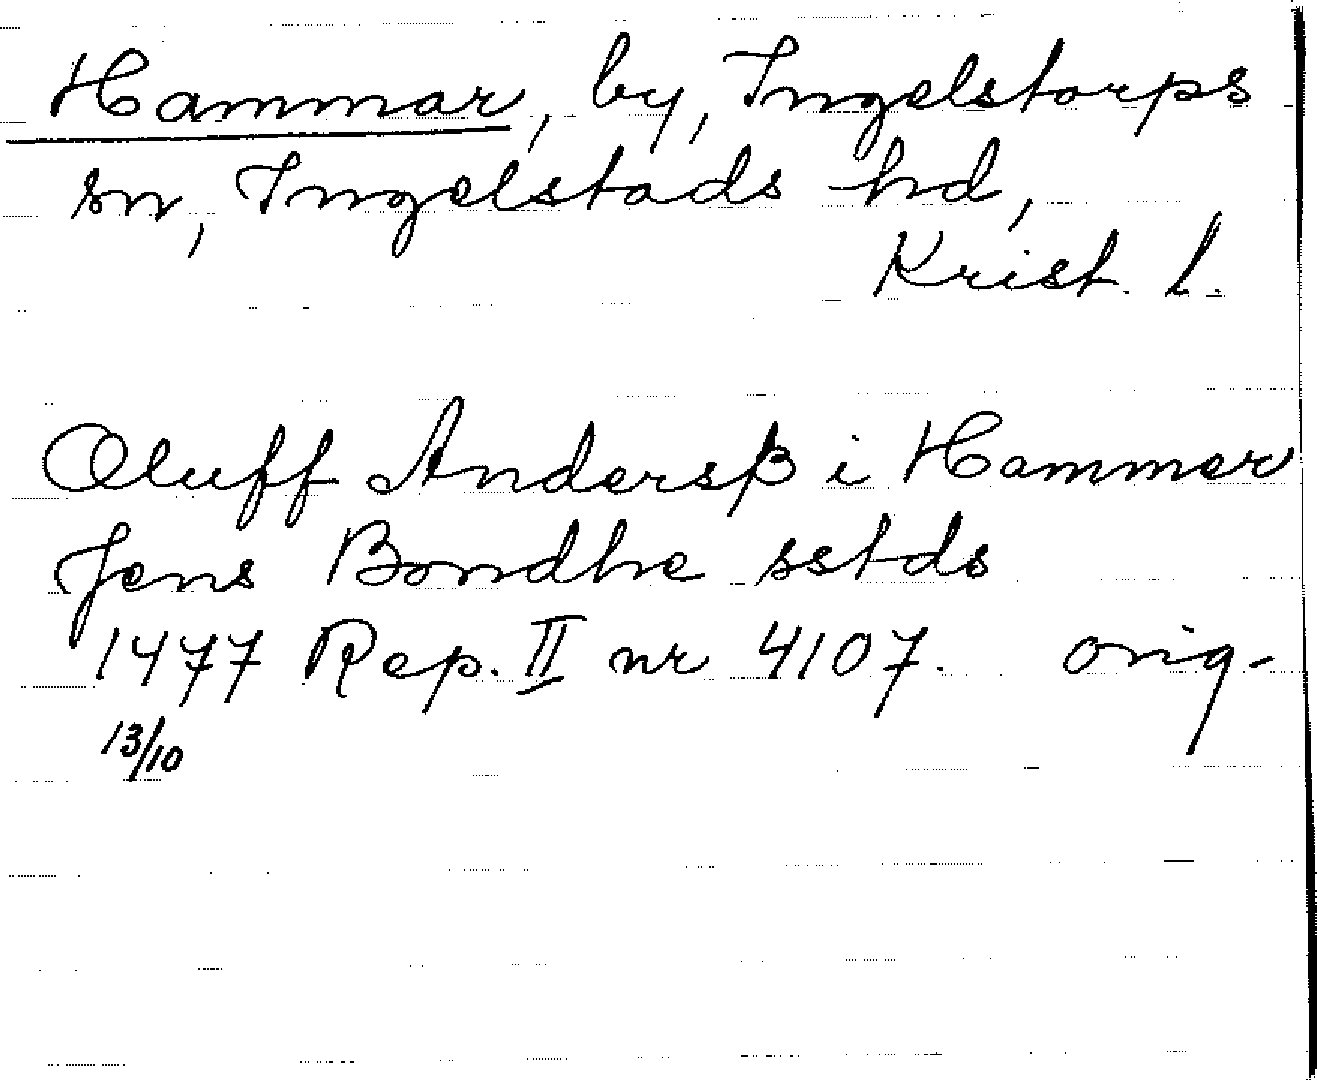 Hammar, by, Ingelstorps
sn, Ingelstads hd,
Krist. l.
Oluff Andersß i Hammer
Jens Bondhe sstds
1477 Rep. II nr 4107. orig.
13/10